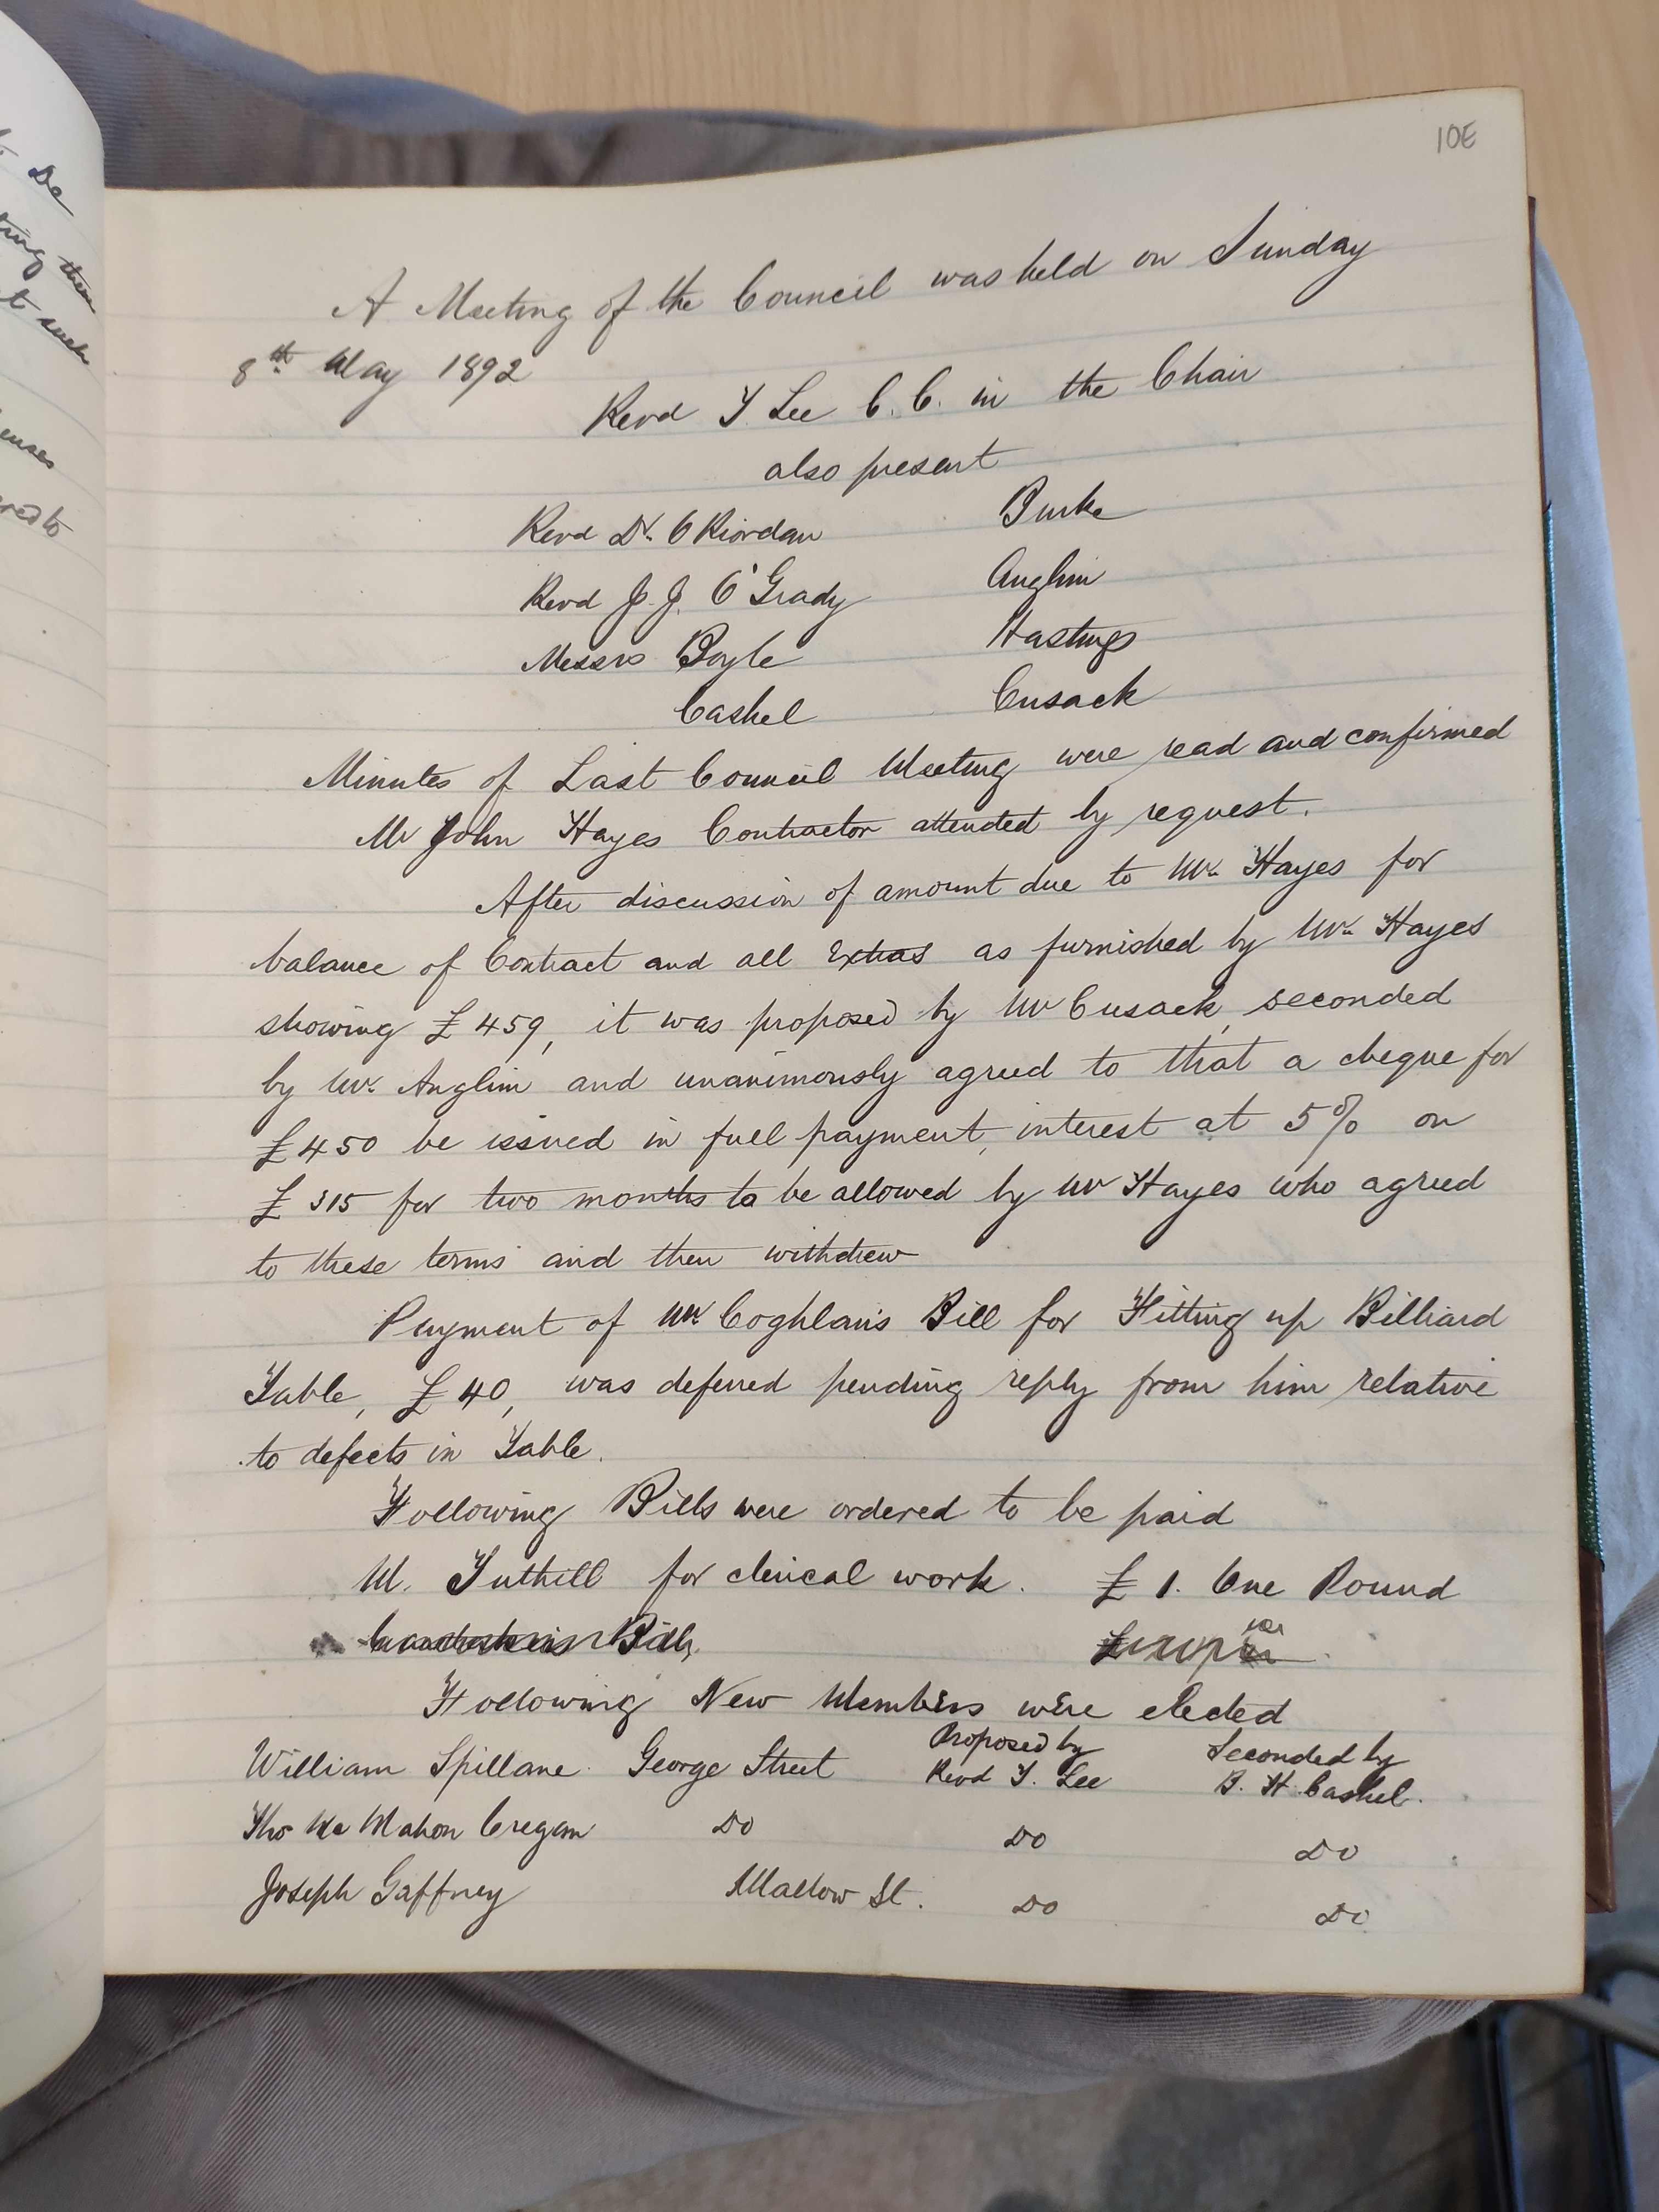 10E
A Meeting of the Council was held on Sunday
8th May 1892
Revd T Lee C.C. in the Chair
also present
Revd Dr. O Riordan Burke
Revd J. J. O'Grady Anglim
Messrs Boyle Hastings
Cashel Cusack
Minutes of Last Council Meeting were read and confirmed
Mr John Hayes Contractor attended by request.
After discussion of amount due to Mr. Hayes for
balance of Contract and all Extras as furnished by Mr. Hayes
showing £459, it was proposed by Mr Cusack, seconded
by Mr. Anglim and unanimously agreed to that a cheque for
£450 be issued in full payment, interest at 5% on
£315 for two months to be allowed by Mr Hayes who agreed
to these terms and then withdrew
Payment of Mr. Coghlan's Bill for Fitting up Billiard
Table, £40, was deferred pending reply from him relative
to defects in Table.
Following Bills were ordered to be paid
M. Tuthill for clerical work. £1. One Pound
Bill,
Following New Members were elected
William Spillane George Street Proposed by Revd T. Lee Seconded by B. H. Cashel.
Thos Mc Mahon Cregan Do Do Do
Joseph Gaffney Mallow St. Do Do
De
ting them
t such
enses
red to